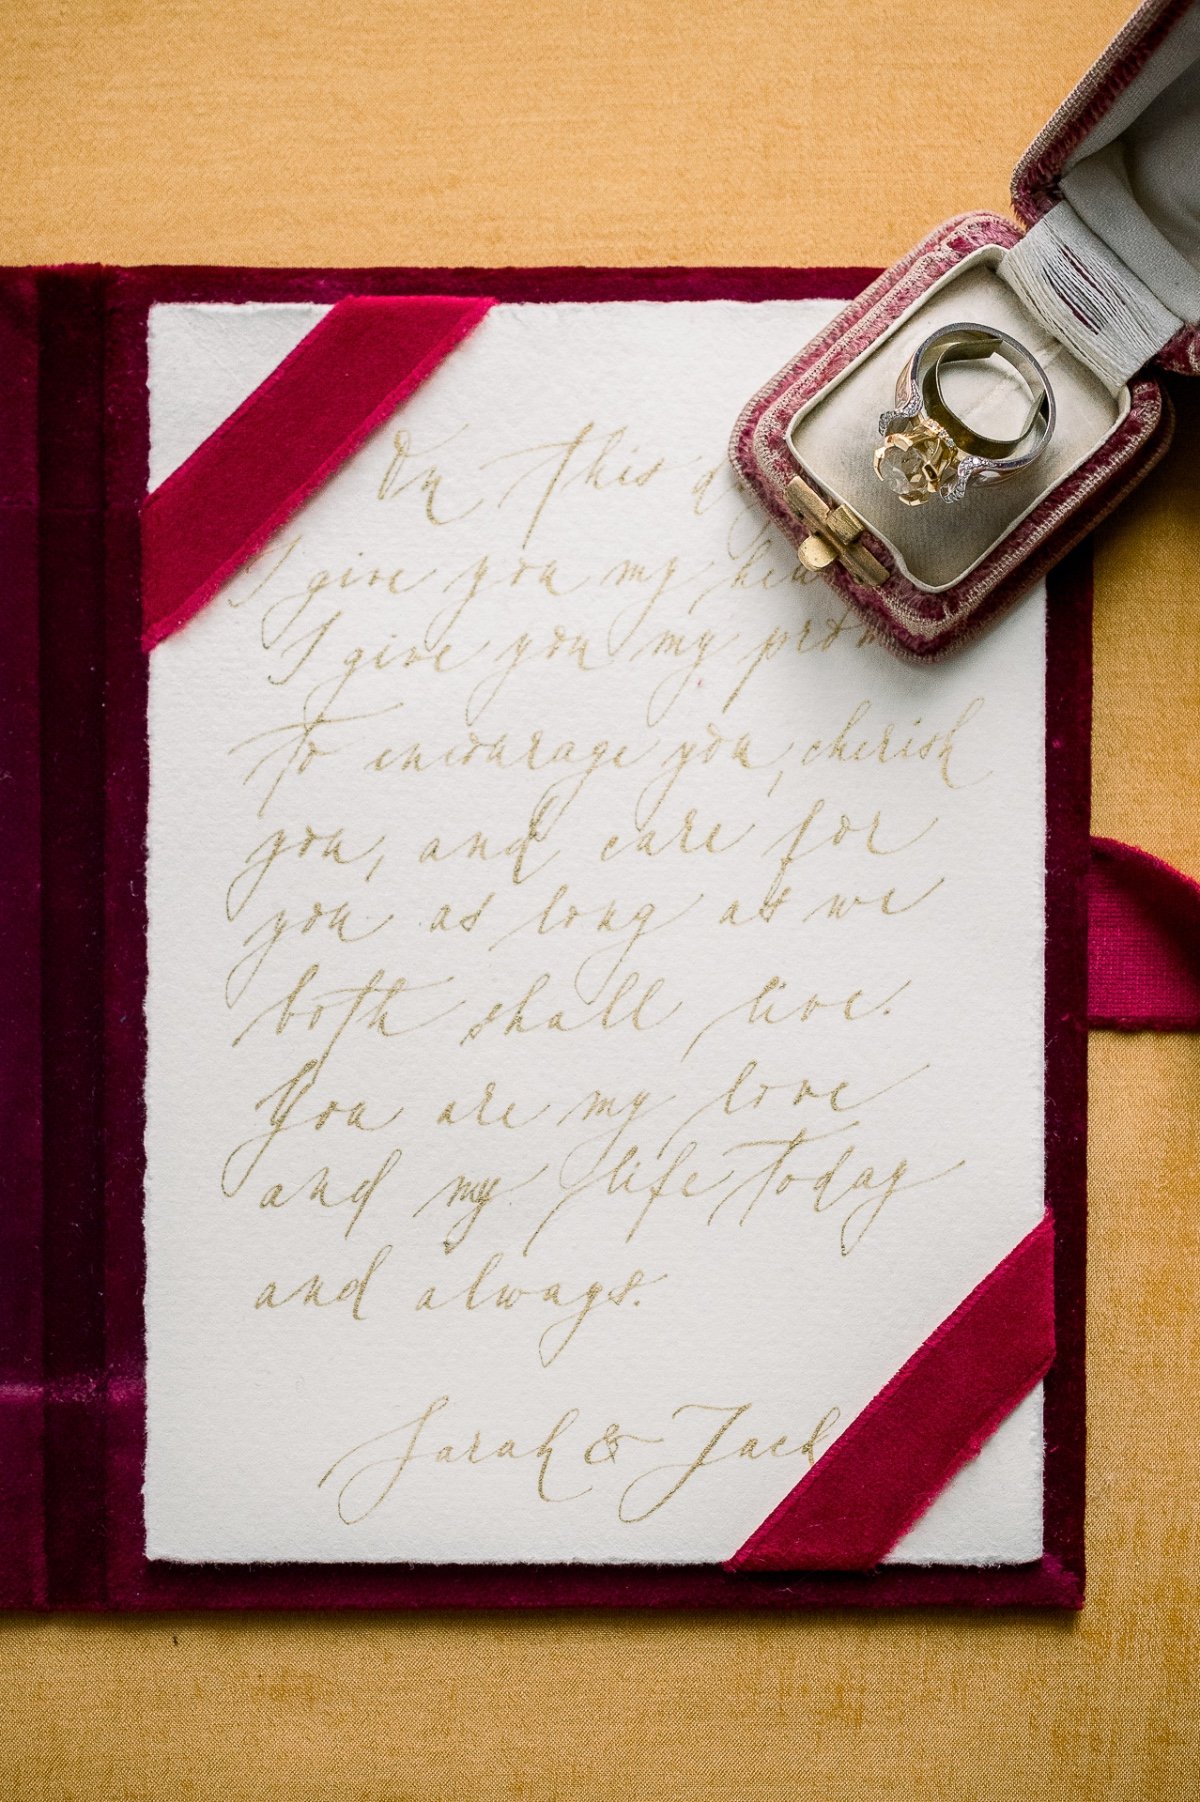 On this
I give you my
I give you my
to encourage you, cherish
you, and care for
you as long as we
both shall live.
You are my love
and my life today
and always.
Sarah & Jack